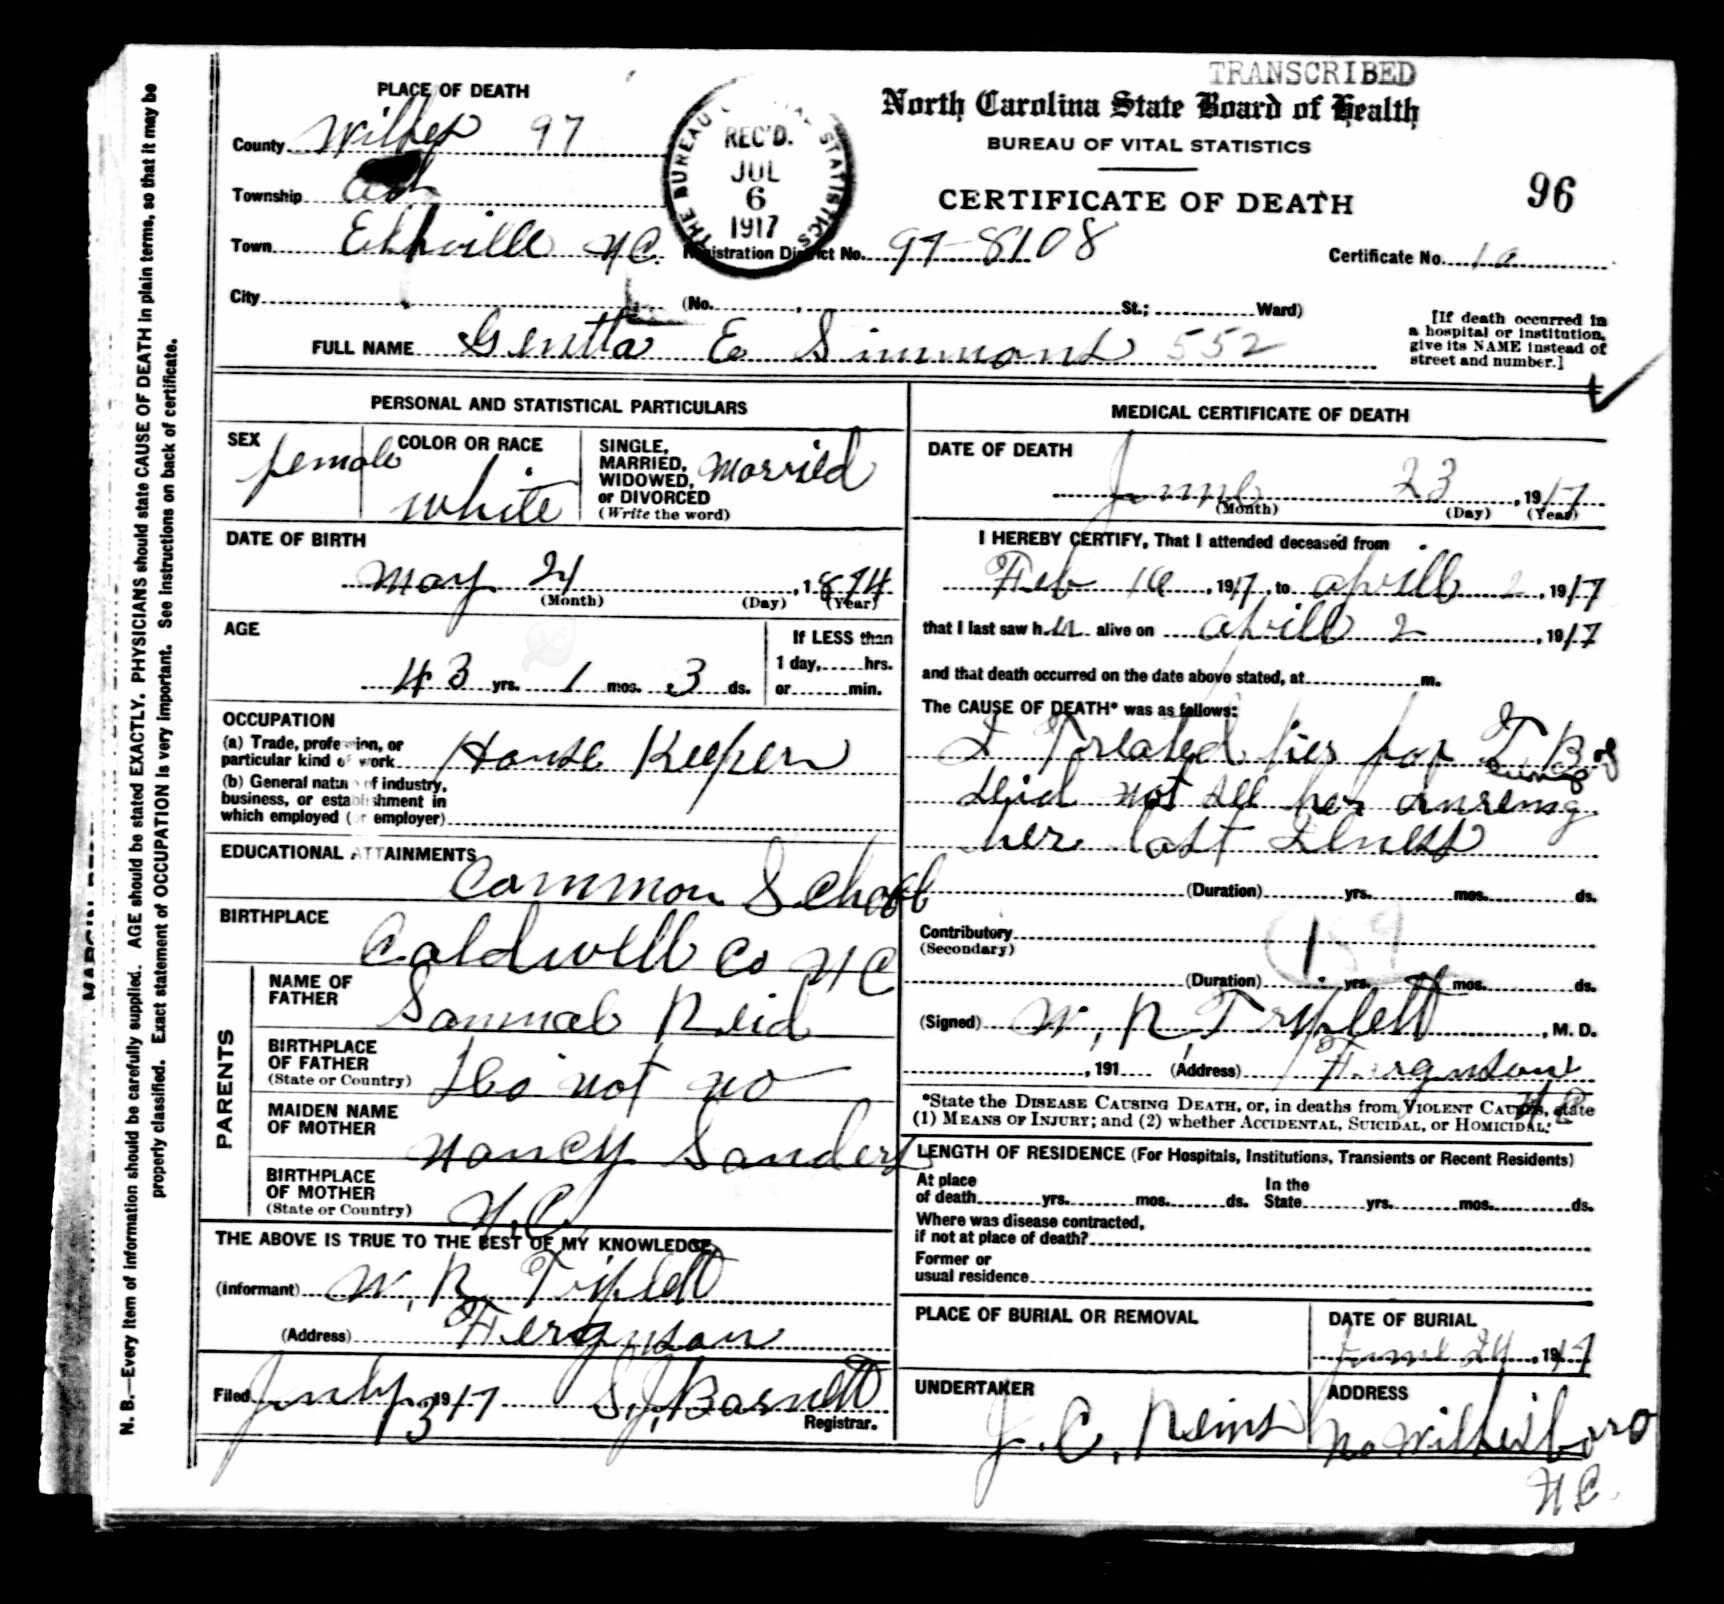 TRANSCRIBED
PLACE OF DEATH
North Carolina State Board of Health
BUREAU OF VITAL STATISTICS
CERTIFICATE OF DEATH
96
County Wilkes 97
Township
Town Elkville N.C.
THE BUREAU VITAL STATISTICS
REC'D.
JUL
6
1917
Registration District No. 97-8108
Certificate No. 10
City (No. St.; Ward)
[If death occurred in
a hospital or institution,
give its NAME instead of
street and number.]
FULL NAME E Simmons 552
PERSONAL AND STATISTICAL PARTICULARS
SEX
female
COLOR OR RACE
white
SINGLE,
MARRIED,
WIDOWED,
or DIVORCED
(Write the word)
Married
DATE OF BIRTH
May 21, 1874
(Month) (Day) (Year)
AGE
43 yrs. 1 mos. 3 ds.
If LESS than
1 day, hrs.
or min.
OCCUPATION
(a) Trade, profession, or
particular kind of work House Keeper
(b) General nature of industry,
business, or establishment in
which employed (or employer)
EDUCATIONAL ATTAINMENTS
Common School
BIRTHPLACE
Caldwell Co N C
PARENTS
NAME OF
FATHER
Samuel Reid
BIRTHPLACE
OF FATHER
(State or Country)
Do not no
MAIDEN NAME
OF MOTHER
Nancy Sanders
BIRTHPLACE
OF MOTHER
(State or Country)
N.C.
THE ABOVE IS TRUE TO THE BEST OF MY KNOWLEDGE
(Informant) W. R. Triplett
(Address) Ferguson
Filed July 3 1917 S. J. Barnett
Registrar.
MEDICAL CERTIFICATE OF DEATH
DATE OF DEATH
June 23, 1917
(Month) (Day) (Year)
I HEREBY CERTIFY, That I attended deceased from
Feb 1917, to aprill 2, 1917
that I last saw her alive on aprill 2, 1917
and that death occurred on the date above stated, at m.
The CAUSE OF DEATH* was as follows:
I Treated her for T B of
Lungs
did not see her during
her last Ilness
(Duration) yrs. mos. ds.
Contributory
(Secondary)
(Duration) yrs. mos. ds.
(Signed) W. R. Triplett, M. D.
, 191 (Address) Ferguson
N C
*State the DISEASE CAUSING DEATH, or, in deaths from VIOLENT CAUSES, state
(1) MEANS OF INJURY; and (2) whether ACCIDENTAL, SUICIDAL, or HOMICIDAL.
LENGTH OF RESIDENCE (For Hospitals, Institutions, Transients or Recent Residents)
At place
of death yrs. mos. ds.
In the
State yrs. mos. ds.
Where was disease contracted,
if not at place of death?
Former or
usual residence
PLACE OF BURIAL OR REMOVAL
DATE OF BURIAL
June 24, 1917
UNDERTAKER
J. C. Reins
ADDRESS
No Wilkesboro
N C.
N. B.—Every item of information should be carefully supplied. AGE should be stated EXACTLY. PHYSICIANS should state CAUSE OF DEATH in plain terms, so that it may be
properly classified. Exact statement of OCCUPATION is very important. See instructions on back of certificate.